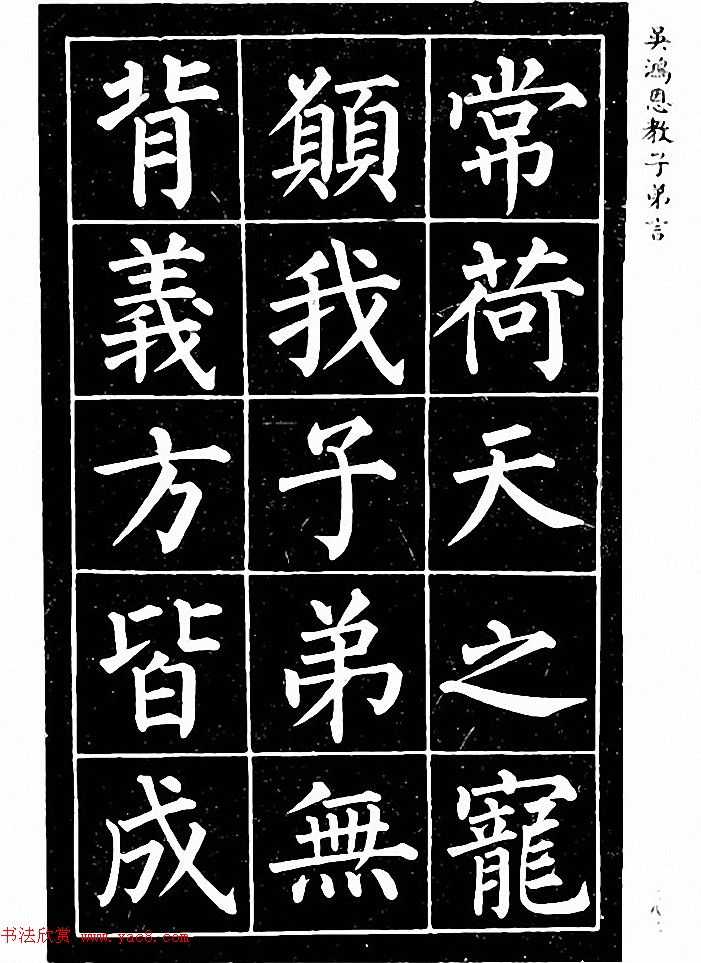 吳鴻恩教子弟言
常荷天之寵
願我子弟無
背義方皆成
书法欣赏 www.yac8.com